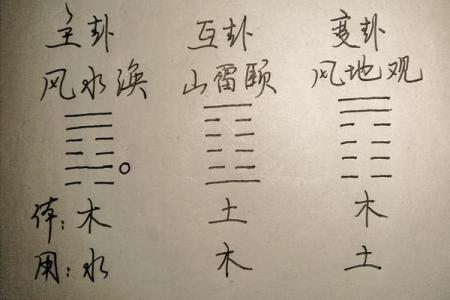 主卦 互卦 变卦
风水涣 山雷颐 风地观
体：木 土 木
用：水 木 土